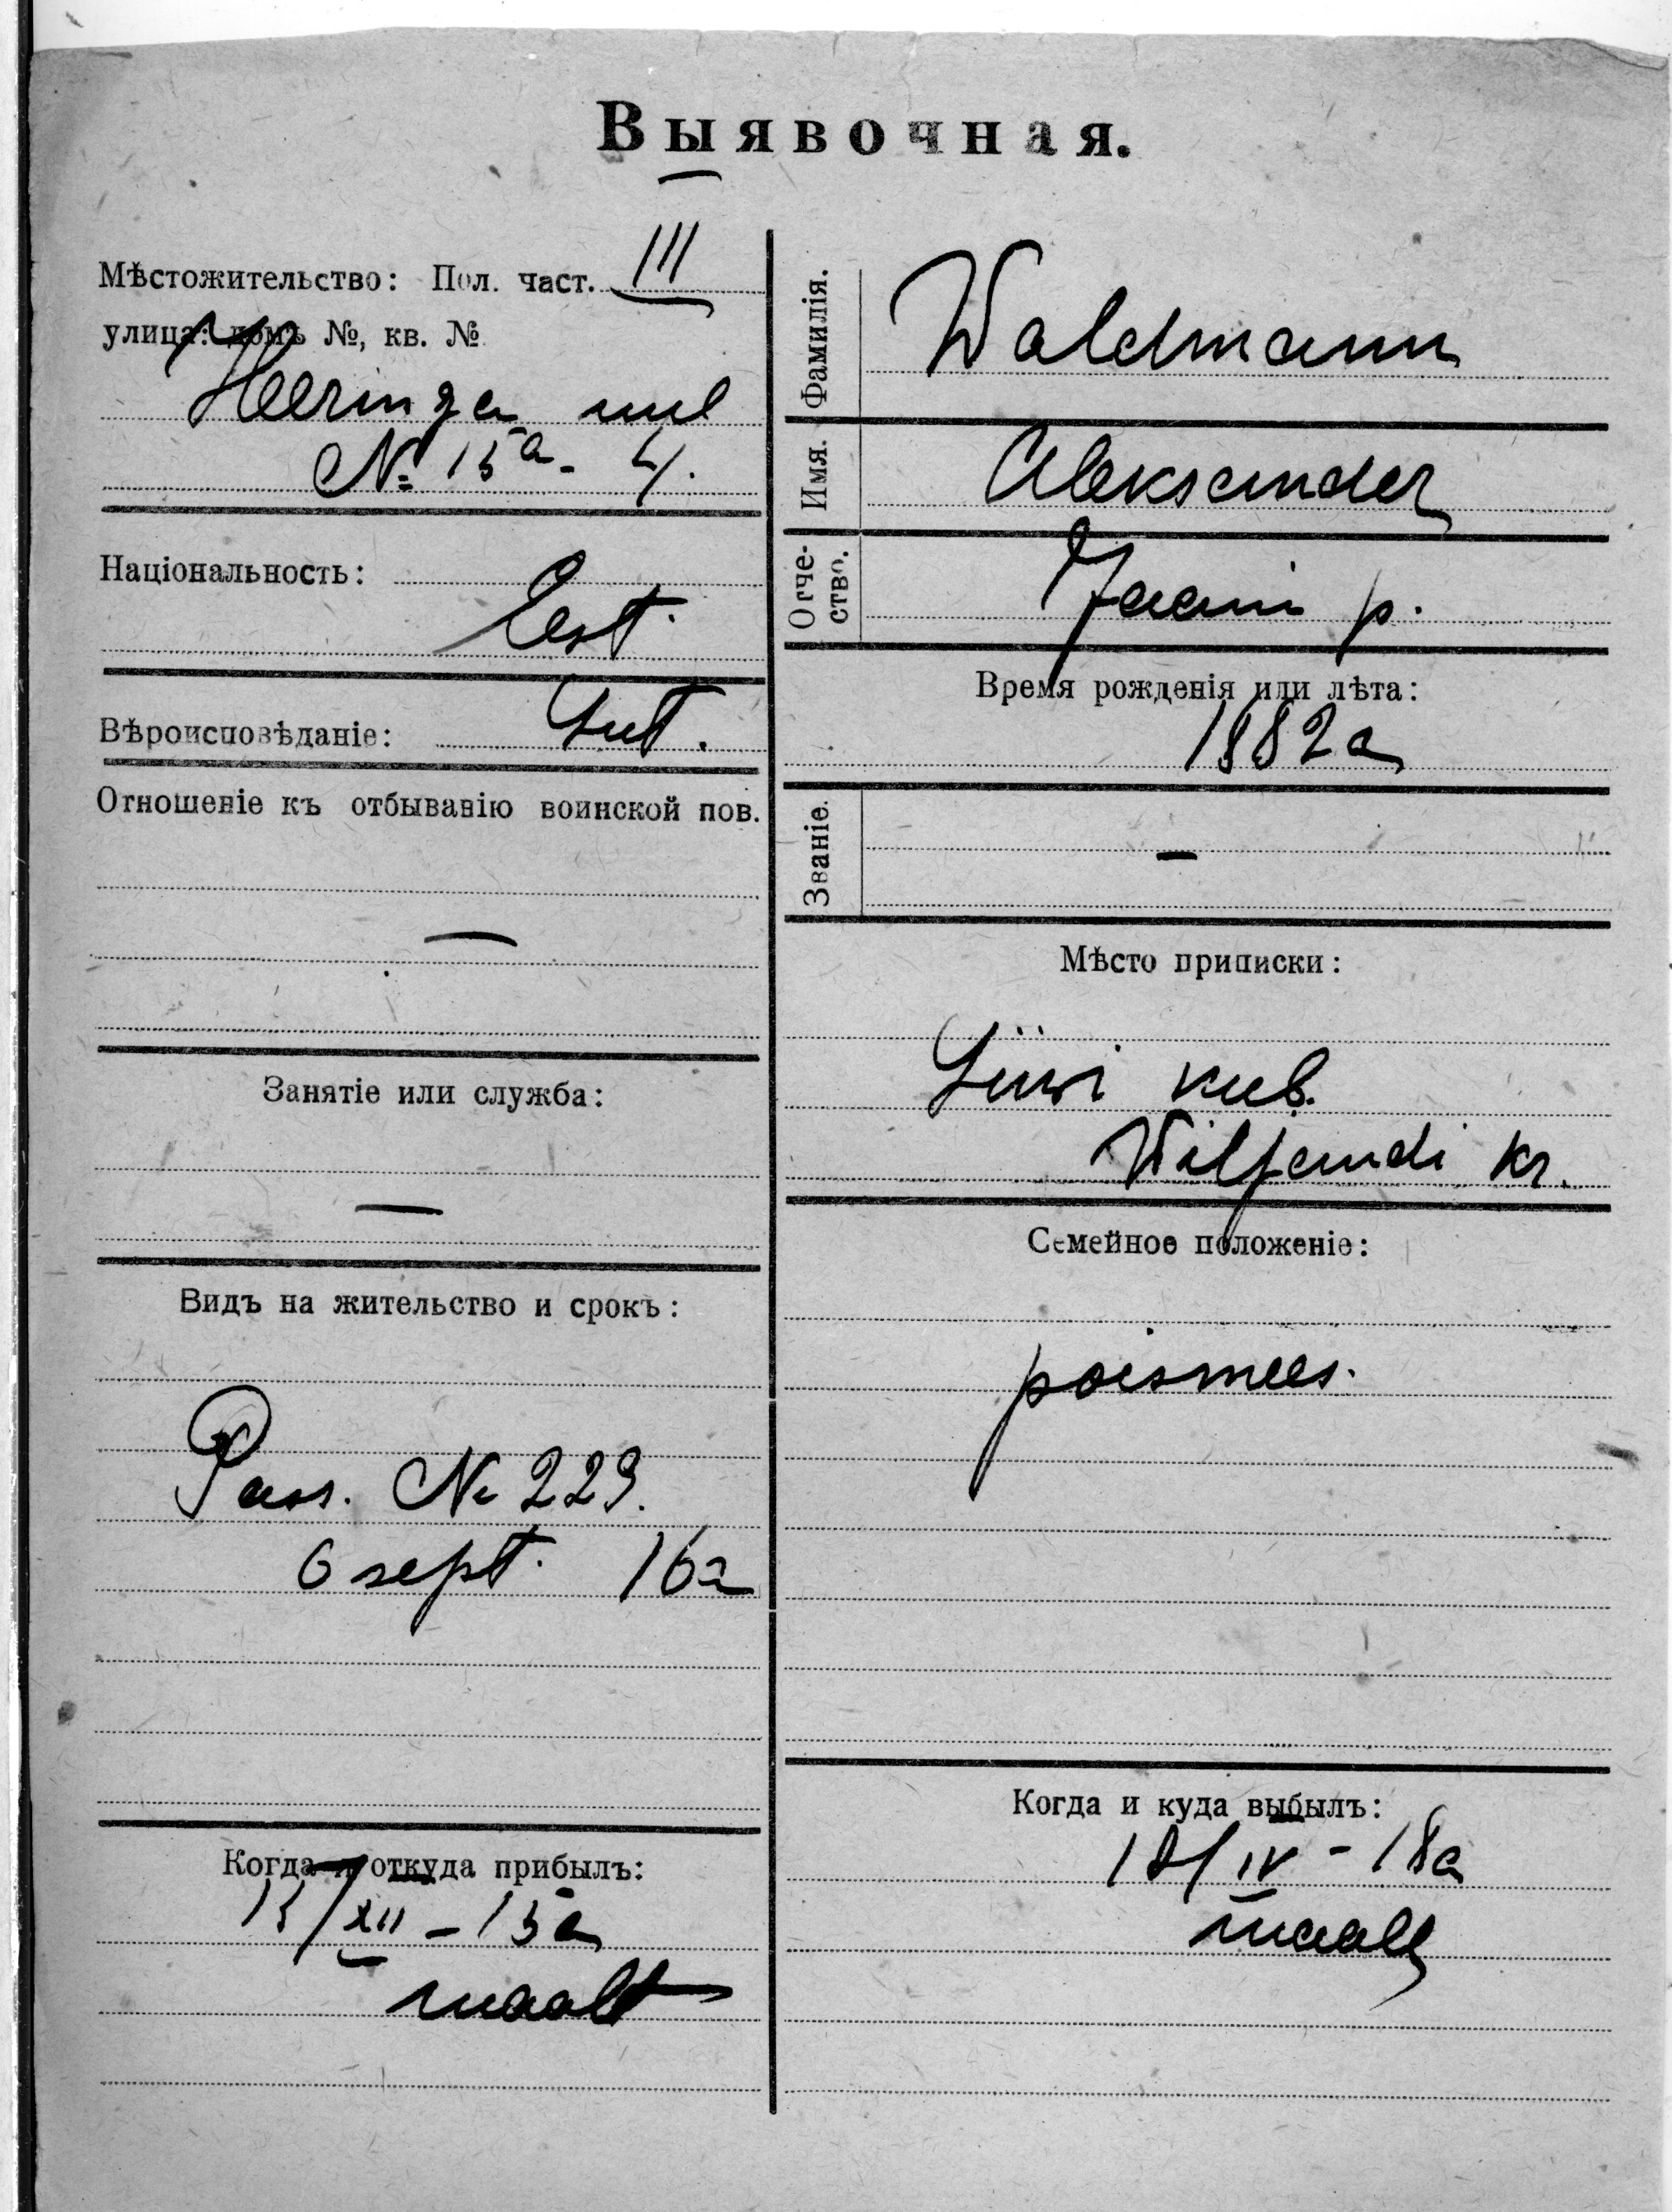 Выявочная.
Мѣстожительство: Пол. част. III
улица: домъ №, кв. №
Heeringa uul
№ 15a - 4.
Національность:
Eest.
Вѣроисповѣданіе: Lut.
Отношеніе къ отбыванію воинской пов.
—
Занятіе или служба:
—
Видъ на жительство и срокъ:
Pass. № 229.
6 sept. 16a
Когда и откуда прибылъ:
15/XII - 15a
maalt
Фамилія. Waldmann
Имя. Aleksander
Отче-
ство. Jaani p.
Время рожденія или лѣта:
1882a
Званіе. —
Мѣсто приписки:
kub.
Wiljandi kr.
Семейное положеніе:
poismees.
Когда и куда выбылъ:
18/IV - 18a
maale